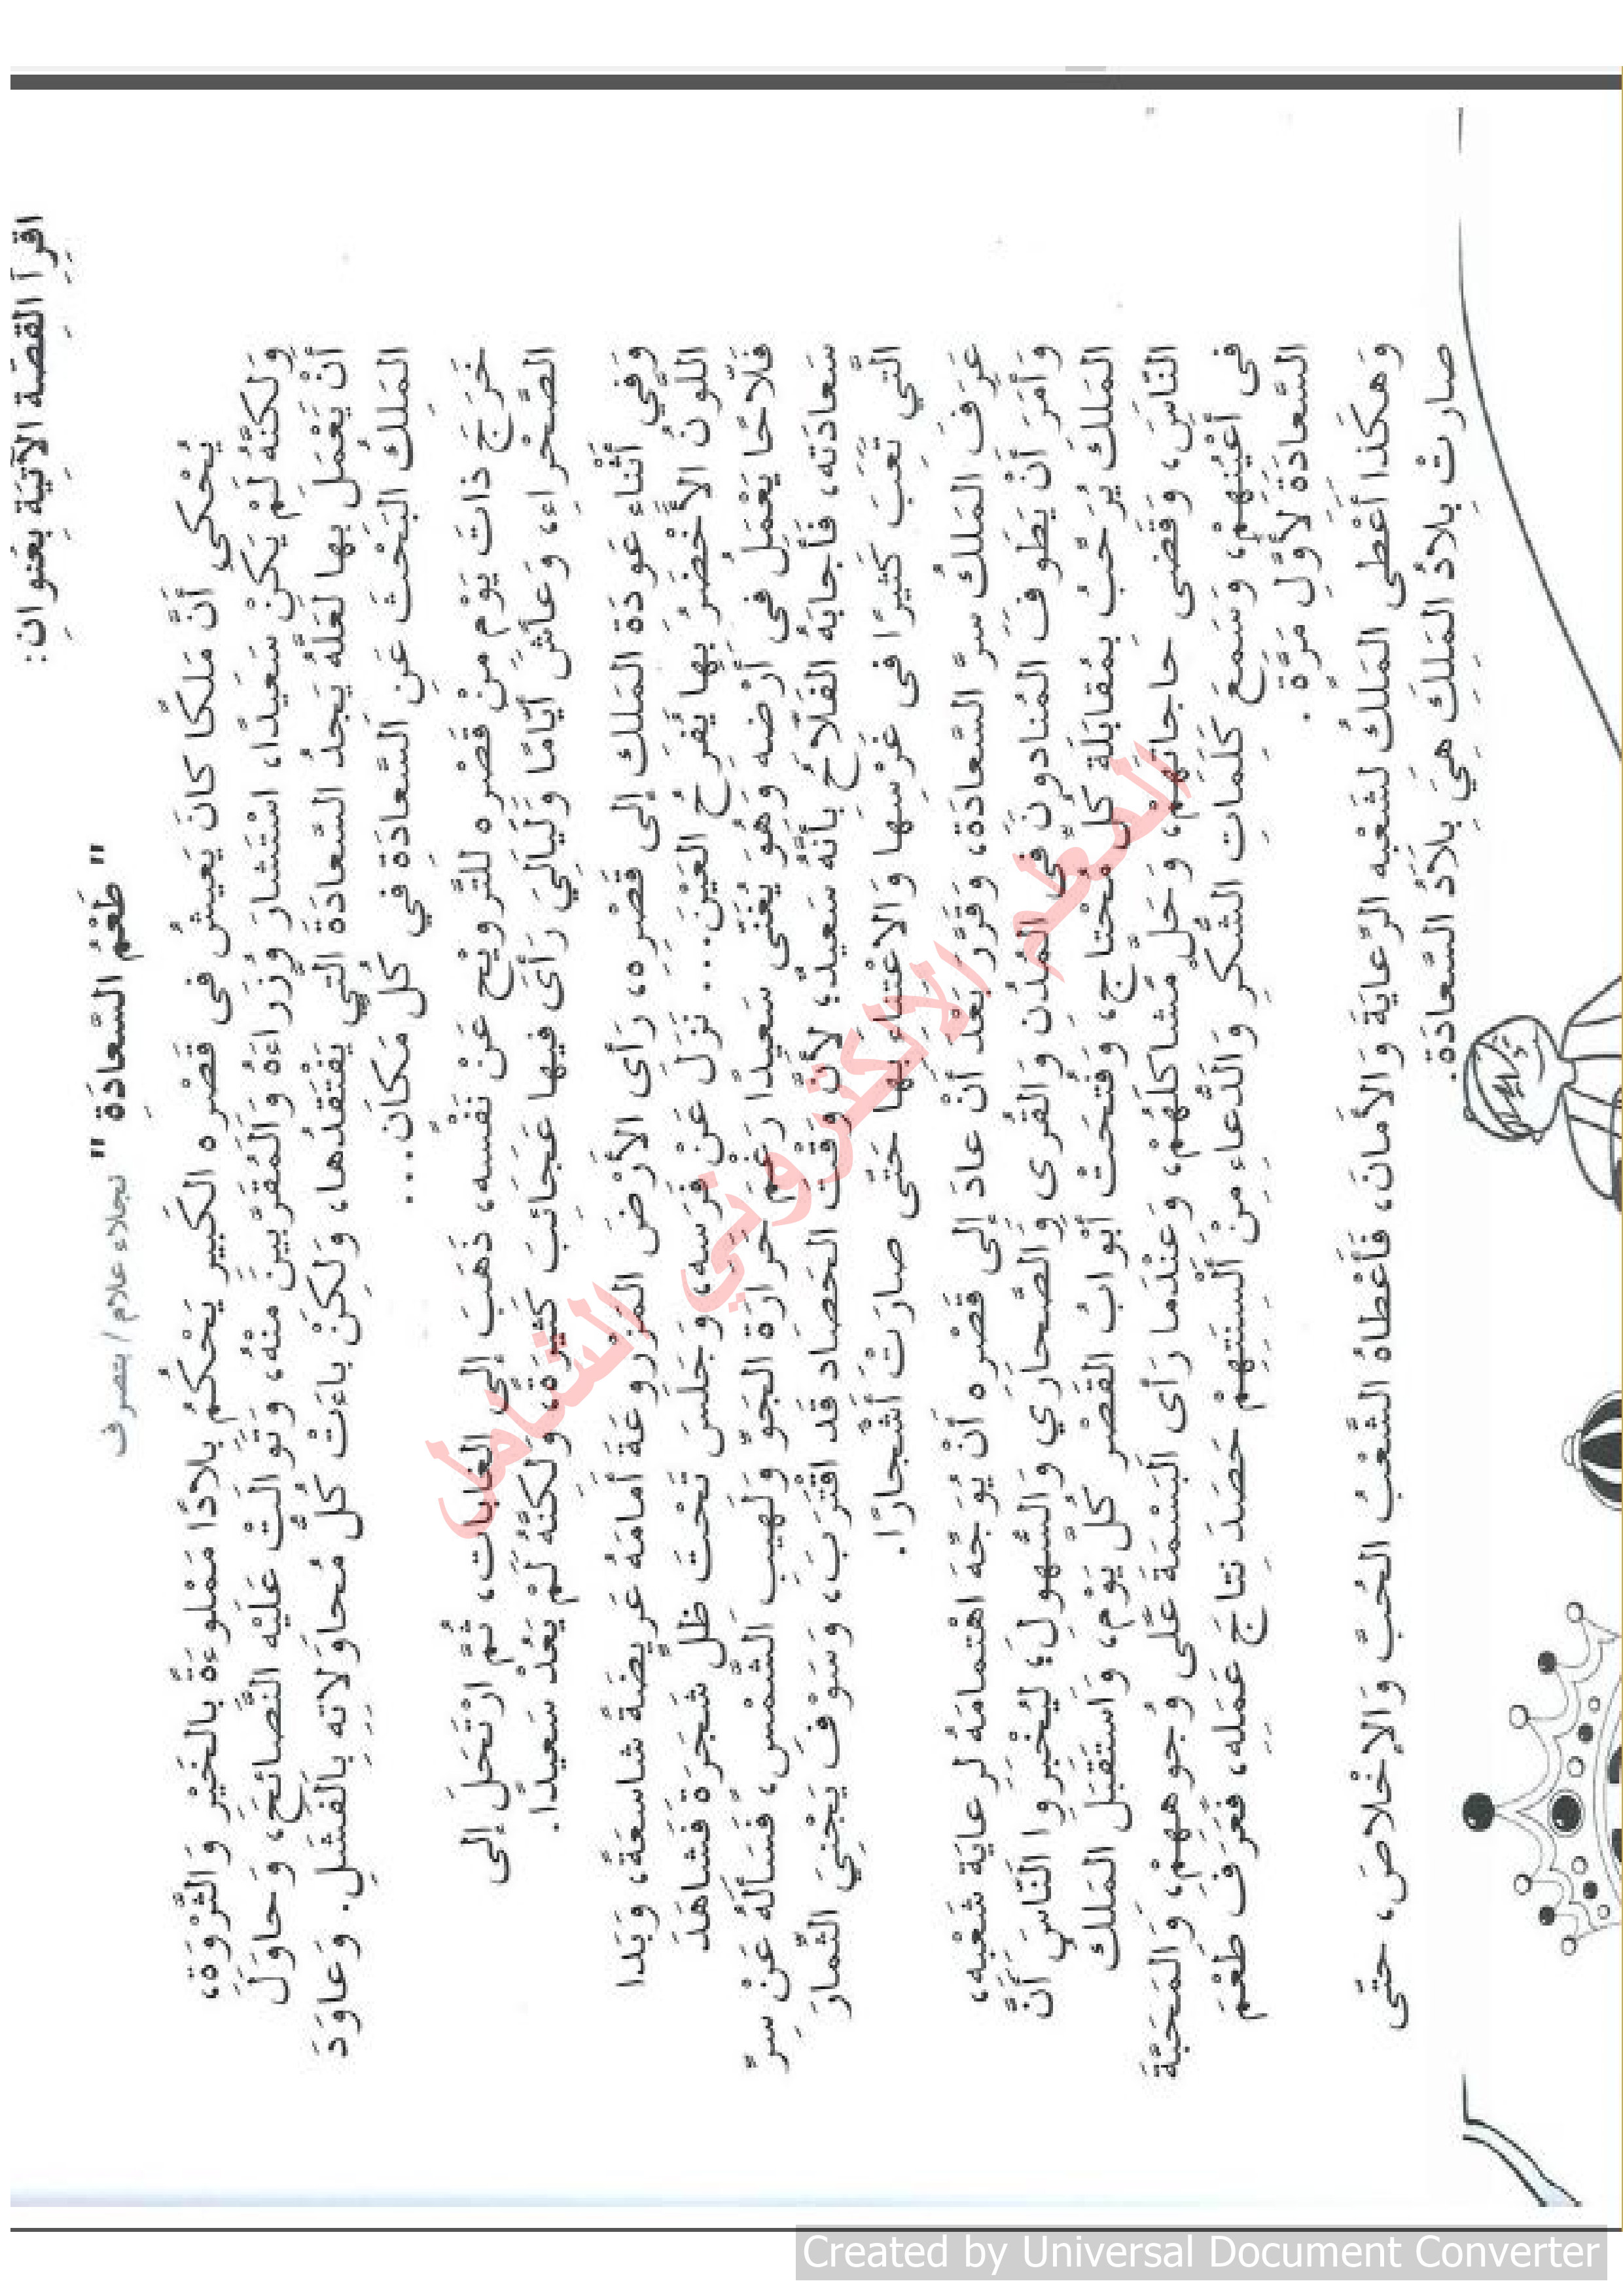 اقرأ القصّة الآتية بعنوان:
" طَعْمُ السَّعادَة "
نجلاء علام / بتصرف
يُحْكى أَنَّ مَلِكًا كانَ يَعيشُ في قَصْرِه الكَبير يَحْكُمُ بِلادًا مَمْلوءَةً بالخَيْرِ وَالثَّرْوَةِ،
وَلكنَّهُ لَمْ يَكُنْ سَعيدًا، اسْتَشارَ وُزَراءَهُ وَالمُقَرَّبينَ مِنْهُ، وَتَوالَتْ عَلَيْه النَّصائحُ، وَحاوَلَ
أَنْ يَعْمَلَ بها لَعَلَّهُ يَجدُ السَّعادَةَ التي يَفْتَقدُها، وَلكِنْ باءَتْ كُلُّ مُحاوَلاتِه بِالفَشَلِ. وَعاوَدَ
المَلكُ البَحْثَ عَنِ السَّعادَة في كُلِّ مَكان...
خَرَجَ ذاتَ يَوْم مِنْ قَصْرِه للتَّرويْحِ عَنْ نَفْسه، ذَهَبَ إلى الغابات، ثُمَّ ارْتَحَلَ إلى
الصَّحْراءِ، وَعاشَ أَيّامًا وَلَيالِيَ رَأَى فيها عَجائبَ كَثيرَةً، وَلكنَّهُ لَمْ يَعُدْ سَعيدًا.
وَفي أَثْناء عَودَة المَلك إلى قَصْرِه، رَأى الأَرْضَ المَزْروعَةَ أَمامَهُ عَريضَةً شاسعَةً، وَبَدا
اللَّونُ الأَخْضَرُ بَهيًا يُفَرِحُ العَيْنَ... نَزَلَ عَنْ فَرَسه، وَجَلَسَ تَحْتَ ظلِّ شَجَرَة فَشاهَدَ
فَلّاحًا يَعْمَلُ في أَرْضه وَهُوَ يُغَنّي سَعيدًا رَغْمَ حَرارَة الجَوِّ وَلَهيب الشَّمْس، فَسَأَلَهُ عَنْ سرِّ
سَعادَته، فَأَجابَهُ الفَلّاحُ بأَنَّهُ سَعيدٌ؛ لأَنَّ وَقْتَ الحَصاد قَد اقْتَرَبَ، وَسَوْفَ يَجْنيَ الثِّمارَ
الَّتي تَعَبَ كَثيرًا في غَرْسها وَالاعْتناء بها حَتّى صارَتْ أَشْجارًا.
عَرَفَ المَلكُ سرَّ السَّعادَة، وَقَرَّرَ بَعْدَ أَنْ عادَ إلى قَصْره أَنْ يُوَجّهَ اهْتمامَهُ لرعايَة شَعْبه،
وَأَمَرَ أَنْ يَطوفَ المُنادونَ في المُدُن وَالقُرى وَالصَّحاري وَالسُّهول؛ ليُخْبروا النّاسَ أَنَّ
المَلكَ يُرَحِّبُ بمُقابَلَة كُلِّ مُحْتاج، وَفُتحَتْ أَبْوابُ القَصْر كُلَّ يَوْم، وَاسْتَقبَلَ المَلكُ
النّاسَ، وَقَضى حاجاتهمْ، وَحَلَّ مَشاكلَهُمْ، وَعنْدَما رَأى البَسْمَةَ عَلى وُجوههمْ، وَالمَحَبَّةَ
في أَعْيُنهمْ، وَسَمعَ كَلمات الشُّكرِ وَالدُّعاءِ مِنْ أَلْسنَتهِمْ حَصَدَ نتاجَ عَمَلِه، فَعَرَفَ طَعْمَ
السَّعادَةِ لأَوَّلِ مَرَّةٍ .
وَهكَذا أَعْطى المَلكُ لشَعْبه الرِّعايَةَ وَالأَمانَ، فَأَعْطاهُ الشَّعْبُ الحُبَّ وَالإخْلاصَ، حَتّى
صارتْ بلادُ المَلكِ هيَ بلادُ السَّعادَة.
المعلم الالكتروني الشامل
Created by Universal Document Converter